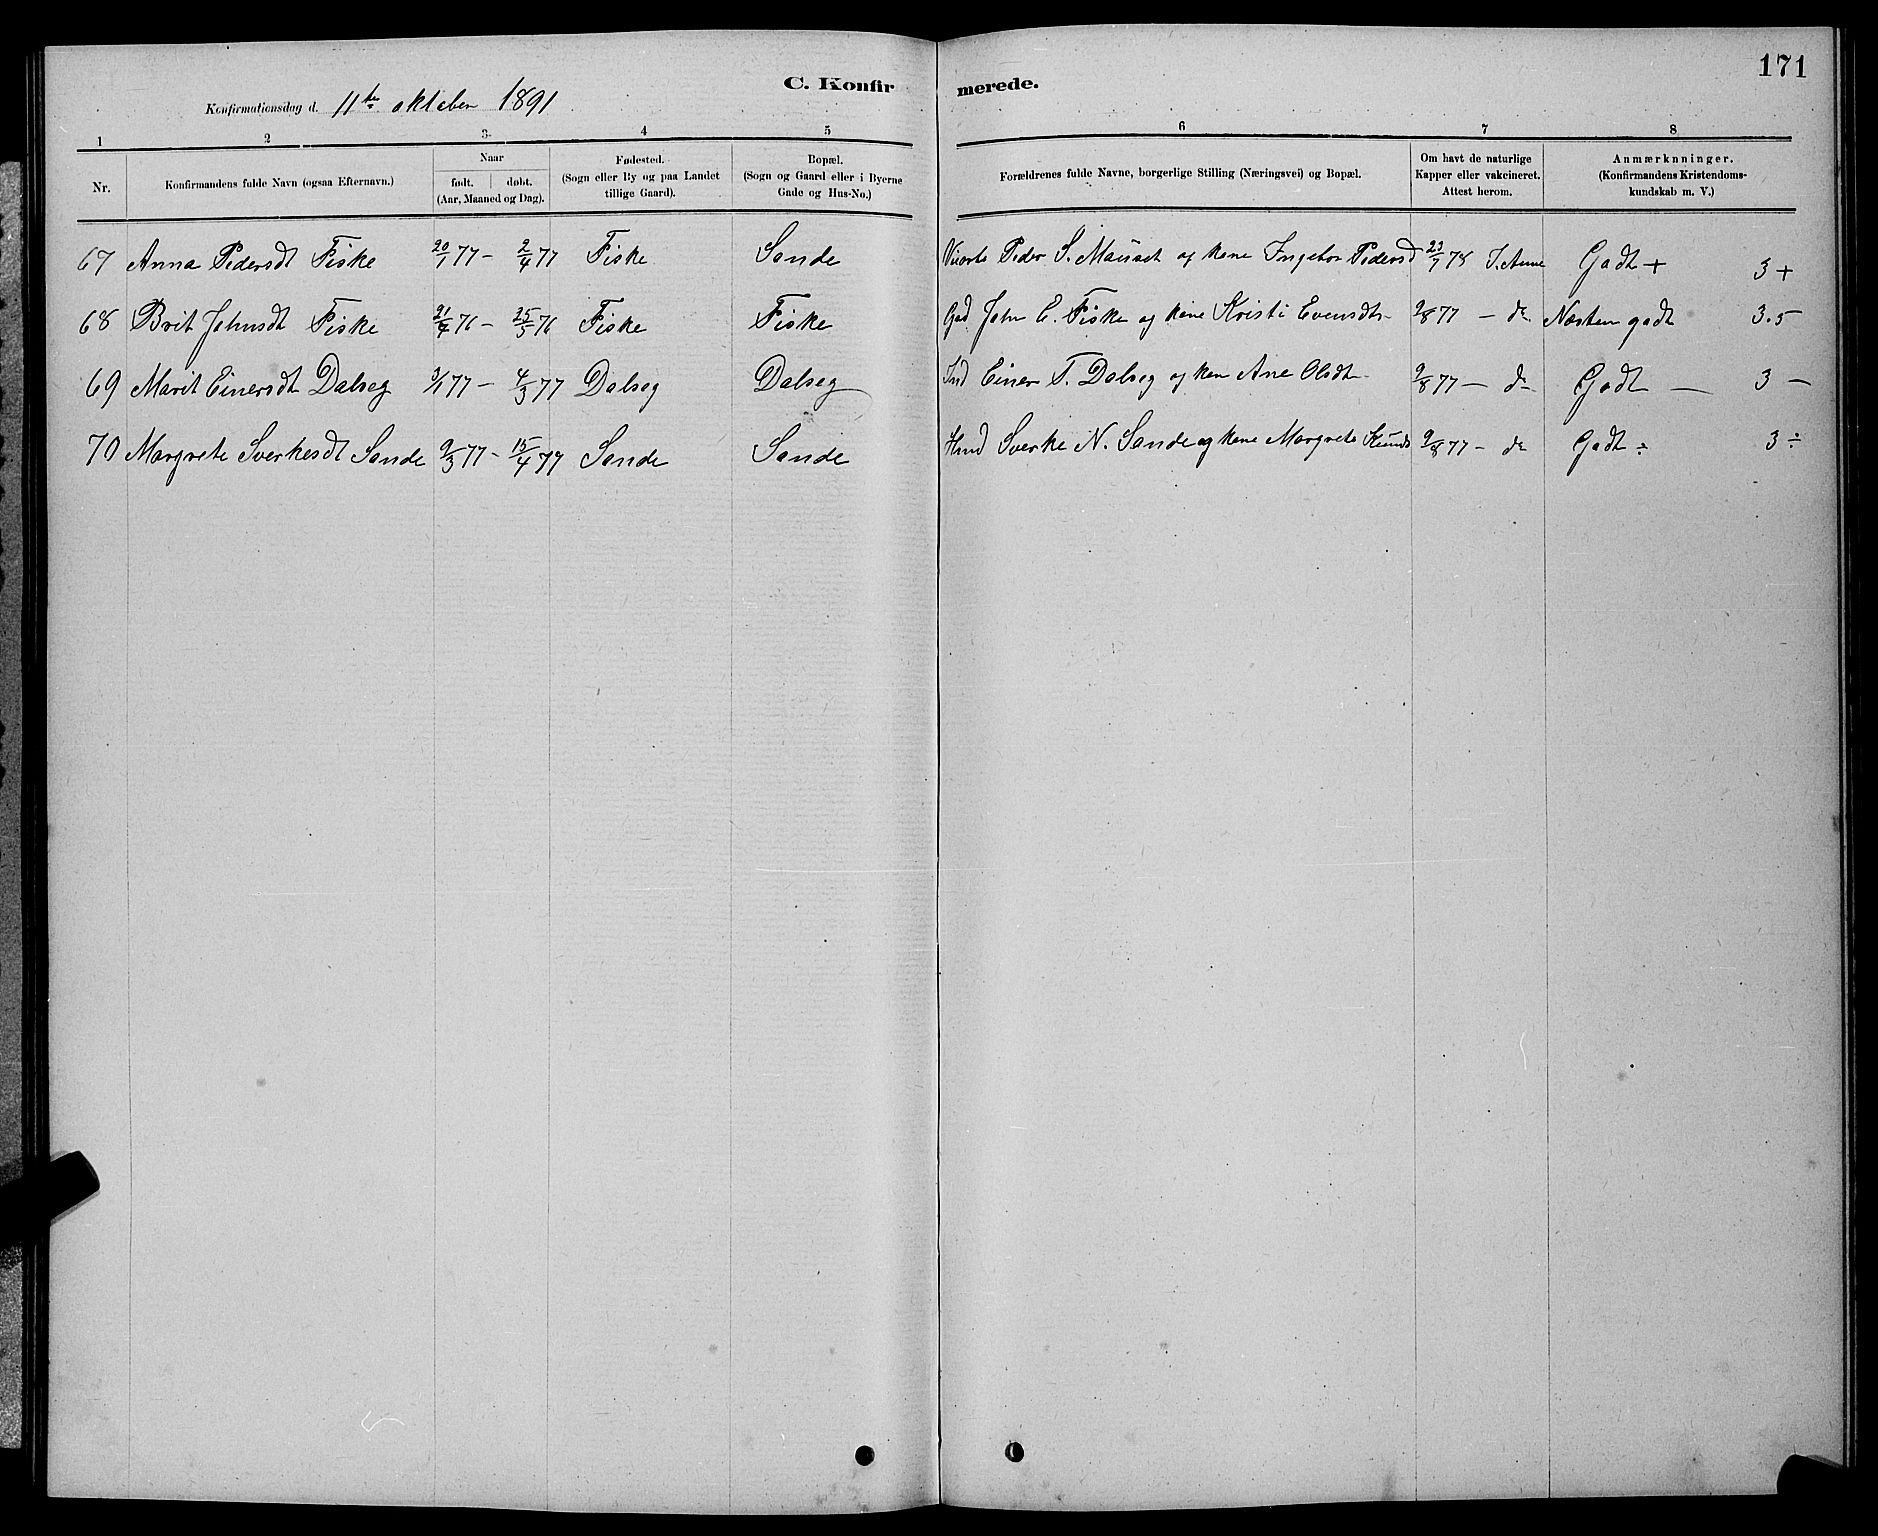 171
C. Konfirmerede.
Konfirmationsdag d. 11te oktober 1891
1 2 3 4 5 6 7 8
Nr. Konfirmandens fulde Navn (ogsaa Efternavn.) Naar født. døbt. (Aar, Maaned og Dag). Fødested. (Sogn eller By og paa Landet tillige Gaard). Bopæl. (Sogn og Gaard eller i Byerne Gade og Hus-No.) Forældrenes fulde Navne, borgerlige Stilling (Næringsvei) og Bopæl. Om havt de naturlige Kapper eller vakcineret. Attest herom. Anmærknninger. (Konfirmandens Kristendoms- kundskab m. V.)
67 Anna Pedersdt Fiske 20/1 77 – 2/4 77 Fiske Sande Peder S. Mauset og kone Ingebor Pedersd 23/7 78 Godt + 3 +
68 Brit Johnsdt Fiske 76 – 25/5 76 Fiske Fiske Gbd John E. Fiske og kone Kristi Evensdtr 9/8 77 – do Næsten godt 3.5
69 Marit Einersdt Dalseg 3/1 77 – 4/3 77 Dalseg Dalseg Ind Einer T. Dalseg og kone Ane Olsdt 9/8 77 – do Godt — 3 –
70 Margrete Sverkesdt Sande 9/3 77 – 15/4 77 Sande Sande Hmd Sverke N. Sande og kone Margrete Knuds 9/8 77 – do Godt ÷ 3 ÷